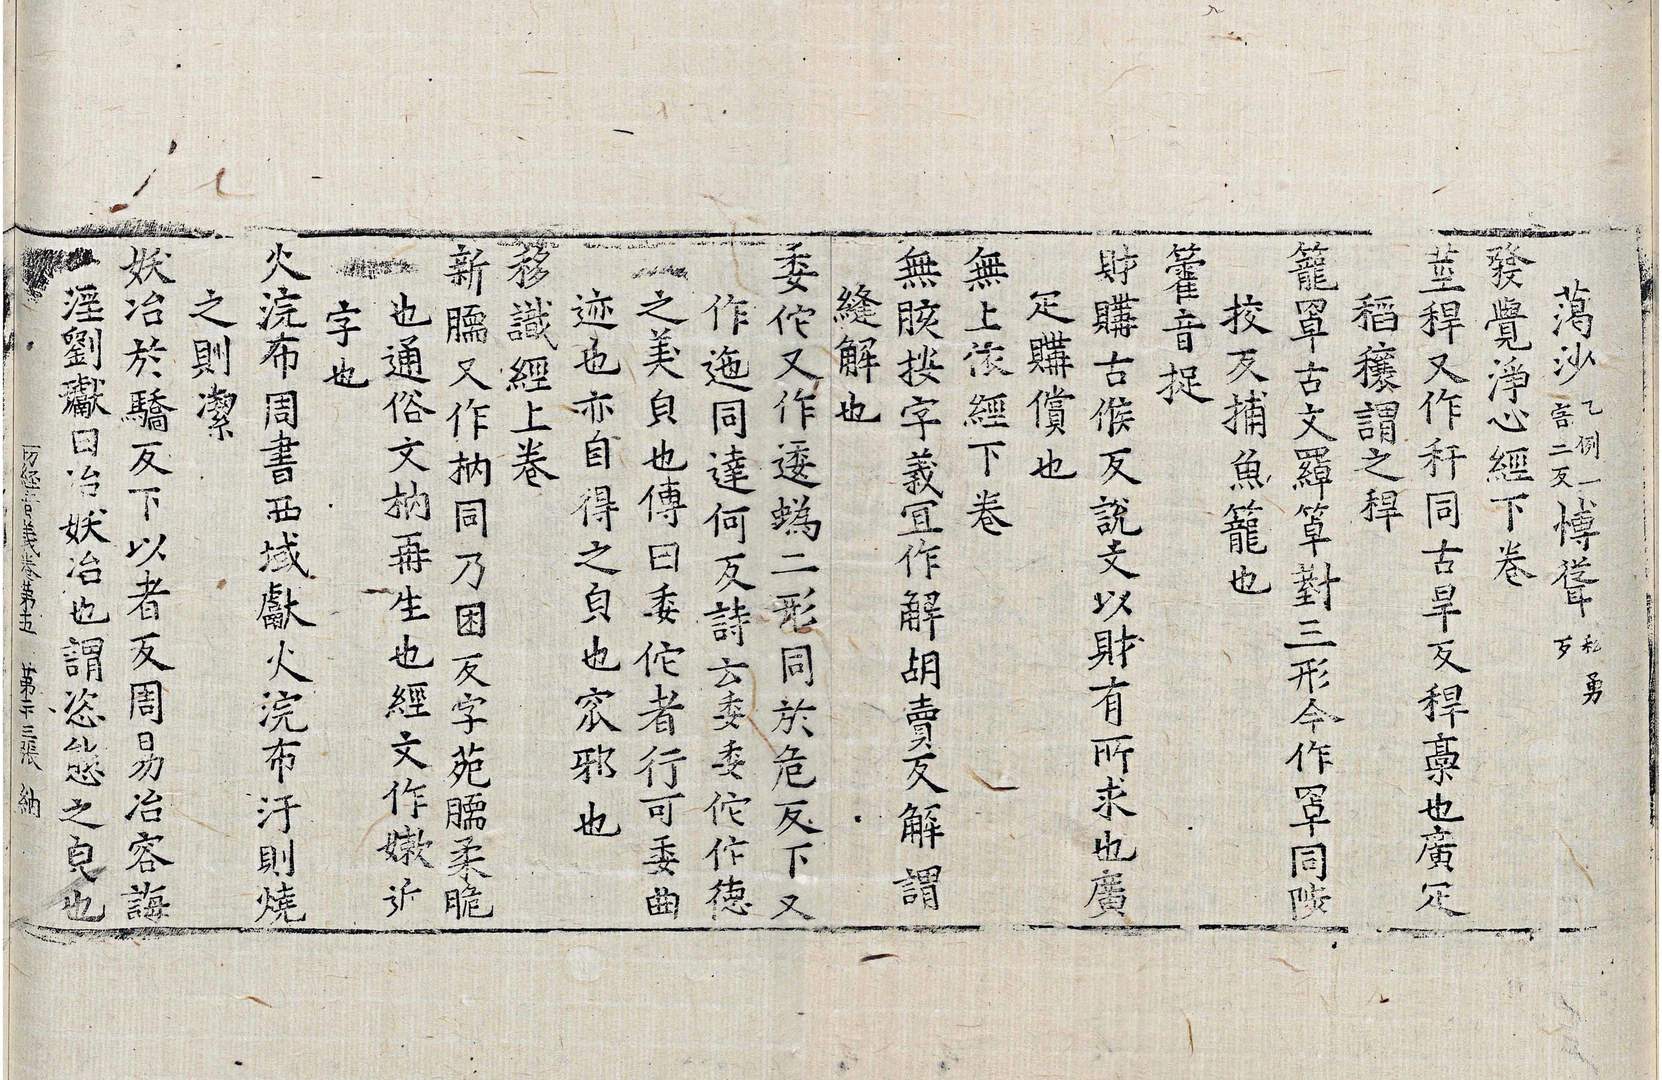 蕩沙 乙例一音二反 博聳 私勇反
發覺淨心經下卷
莖稈又作秆同古旱反稈稾也廣疋
稻穰謂之稈
籠罩古文羄𥬞對三形今作罩同陟
挍反捕魚籠也
籗音捉
財購古候反說文以財有所求也廣
疋購償也
無上依經下卷
無胲按字義冝作解胡賣反解謂
縫解也
委佗又作逶蜲二形同於危反下又
作迤同達何反詩云委委佗佗德
之美皃也傳曰委佗者行可委曲
迹也亦自得之皃也窊邪也
移識經上卷
新臑又作枘同乃困反字苑臑柔脆
也通俗文枘再生也經文作嫰近
字也
火浣布周書西域獻火浣布汙則燒
之則潔
妖冶於驕反下以者反周易冶容誨
淫劉瓛曰冶妖冶也謂恣態之皃也
一切經音義卷第五 第二十三張 納